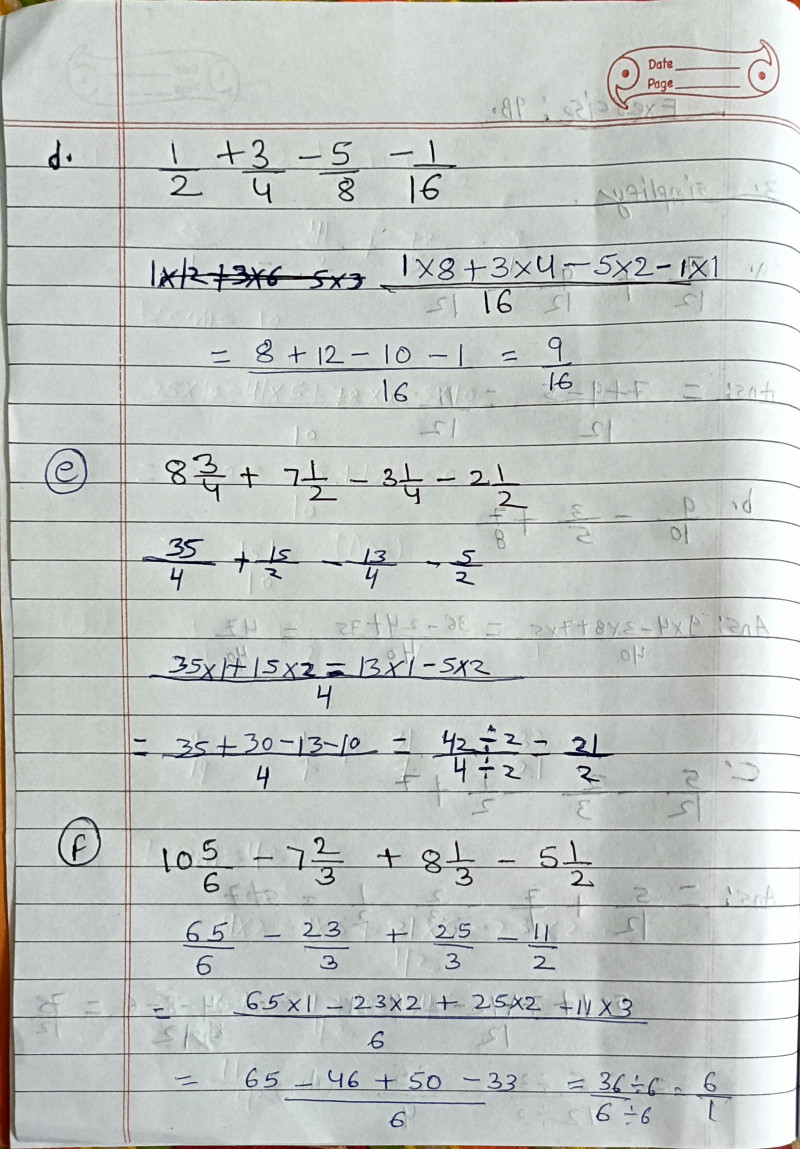 Date
Page
d. 1/2 + 3/4 - 5/8 - 1/16
1×12+3×6 5×3 (1×8+3×4-5×2-1×1)/16
= (8+12-10-1)/16 = 9/16
(e) 8 3/4 + 7 1/2 - 3 1/4 - 2 1/2
35/4 + 15/2 - 13/4 - 5/2
(35×1+15×2=13×1-5×2)/4
= (35+30-13-10)/4 = (42÷2)/(4÷2) = 21/2
(f) 10 5/6 - 7 2/3 + 8 1/3 - 5 1/2
65/6 - 23/3 + 25/3 - 11/2
= (65×1-23×2+25×2+11×3)/6
= (65-46+50-33)/6 = (36÷6)/(6÷6) = 6/1